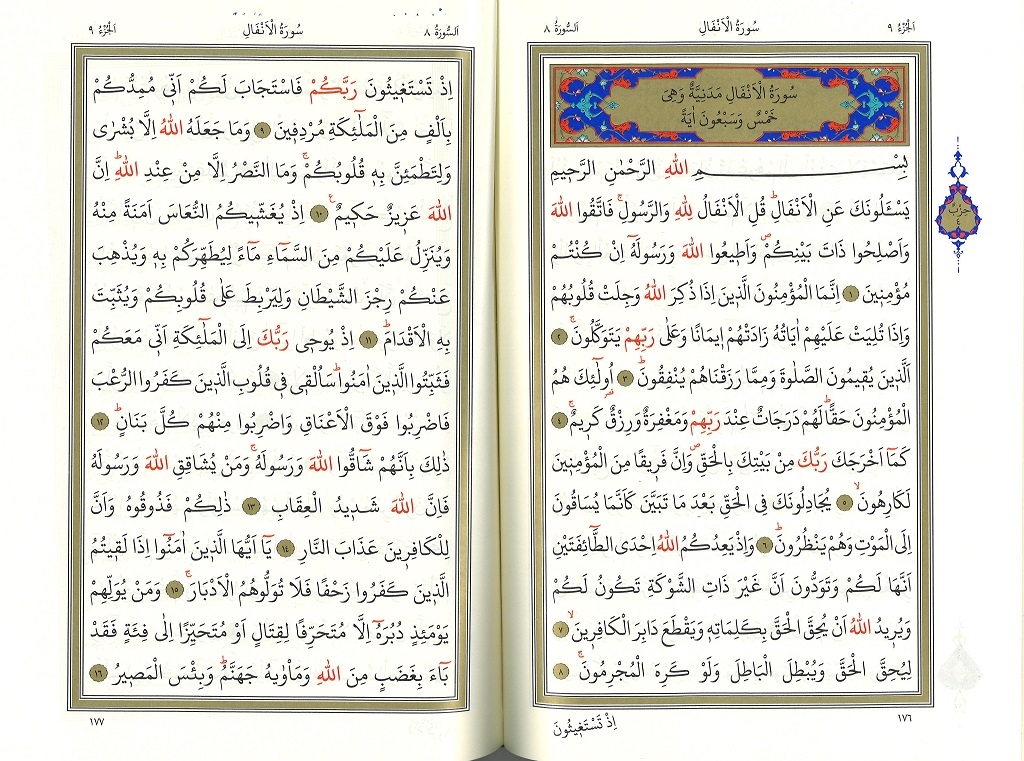 اَلْجُزْءُ ٩
سُورَةُ الْاَنْفَالِ
اَلسُّورَةُ ٨
سُورَةُ الْاَنْفَالِ مَدَنِيَّةٌ وَهِيَ
خَمْسٌ وَسَبْعُونَ اٰيَةً
بِسْمِ اللّٰهِ الرَّحْمٰنِ الرَّحِيمِ
يَسْـَٔلُونَكَ عَنِ الْاَنْفَالِۜ قُلِ الْاَنْفَالُ لِلّٰهِ وَالرَّسُولِۚ فَاتَّقُوا اللّٰهَ
وَاَصْلِحُوا ذَاتَ بَيْنِكُمْۖ وَاَطِيعُوا اللّٰهَ وَرَسُولَهُٓ اِنْ كُنْتُمْ
مُؤْمِنِينَ ١ اِنَّمَا الْمُؤْمِنُونَ الَّذِينَ اِذَا ذُكِرَ اللّٰهُ وَجِلَتْ قُلُوبُهُمْ
وَاِذَا تُلِيَتْ عَلَيْهِمْ اٰيَاتُهُ زَادَتْهُمْ اِيمَانًا وَعَلٰى رَبِّهِمْ يَتَوَكَّلُونَۚ ٢
اَلَّذِينَ يُقِيمُونَ الصَّلٰوةَ وَمِمَّا رَزَقْنَاهُمْ يُنْفِقُونَۜ ٣ اُو۬لٰٓئِكَ هُمُ
الْمُؤْمِنُونَ حَقًّاۜ لَهُمْ دَرَجَاتٌ عِنْدَ رَبِّهِمْ وَمَغْفِرَةٌ وَرِزْقٌ كَرِيمٌۚ ٤
كَمَٓا اَخْرَجَكَ رَبُّكَ مِنْ بَيْتِكَ بِالْحَقِّۖ وَاِنَّ فَرِيقًا مِنَ الْمُؤْمِنِينَ
لَكَارِهُونَۙ ٥ يُجَادِلُونَكَ فِي الْحَقِّ بَعْدَ مَا تَبَيَّنَ كَاَنَّمَا يُسَاقُونَ
اِلَى الْمَوْتِ وَهُمْ يَنْظُرُونَۜ ٦ وَاِذْ يَعِدُكُمُ اللّٰهُ اِحْدَى الطَّٓائِفَتَيْنِ
اَنَّهَا لَكُمْ وَتَوَدُّونَ اَنَّ غَيْرَ ذَاتِ الشَّوْكَةِ تَكُونُ لَكُمْ
وَيُرِيدُ اللّٰهُ اَنْ يُحِقَّ الْحَقَّ بِكَلِمَاتِهِ وَيَقْطَعَ دَابِرَ الْكَافِرِينَۙ ٧
لِيُحِقَّ الْحَقَّ وَيُبْطِلَ الْبَاطِلَ وَلَوْ كَرِهَ الْمُجْرِمُونَۚ ٨
١٧٦
اِذْ تَسْتَغِيثُونَ
حِزْبٌ
٤
اَلسُّورَةُ ٨
سُورَةُ الْاَنْفَالِ
اَلْجُزْءُ ٩
اِذْ تَسْتَغِيثُونَ رَبَّكُمْ فَاسْتَجَابَ لَكُمْ اَنِّي مُمِدُّكُمْ
بِاَلْفٍ مِنَ الْمَلٰٓئِكَةِ مُرْدِفِينَ ٩ وَمَا جَعَلَهُ اللّٰهُ اِلَّا بُشْرٰى
وَلِتَطْمَئِنَّ بِهِ قُلُوبُكُمْۚ وَمَا النَّصْرُ اِلَّا مِنْ عِنْدِ اللّٰهِۜ اِنَّ
اللّٰهَ عَزِيزٌ حَكِيمٌ ١٠ اِذْ يُغَشِّيكُمُ النُّعَاسَ اَمَنَةً مِنْهُ
وَيُنَزِّلُ عَلَيْكُمْ مِنَ السَّمَٓاءِ مَٓاءً لِيُطَهِّرَكُمْ بِهِ وَيُذْهِبَ
عَنْكُمْ رِجْزَ الشَّيْطَانِ وَلِيَرْبِطَ عَلٰى قُلُوبِكُمْ وَيُثَبِّتَ
بِهِ الْاَقْدَامَۜ ١١ اِذْ يُوحِي رَبُّكَ اِلَى الْمَلٰٓئِكَةِ اَنِّي مَعَكُمْ
فَثَبِّتُوا الَّذِينَ اٰمَنُواۜ سَاُلْقِي فِي قُلُوبِ الَّذِينَ كَفَرُوا الرُّعْبَ
فَاضْرِبُوا فَوْقَ الْاَعْنَاقِ وَاضْرِبُوا مِنْهُمْ كُلَّ بَنَانٍۜ ١٢
ذٰلِكَ بِاَنَّهُمْ شَٓاقُّوا اللّٰهَ وَرَسُولَهُۚ وَمَنْ يُشَاقِقِ اللّٰهَ وَرَسُولَهُ
فَاِنَّ اللّٰهَ شَدِيدُ الْعِقَابِ ١٣ ذٰلِكُمْ فَذُوقُوهُ وَاَنَّ
لِلْكَافِرِينَ عَذَابَ النَّارِ ١٤ يَٓا اَيُّهَا الَّذِينَ اٰمَنُٓوا اِذَا لَقِيتُمُ
الَّذِينَ كَفَرُوا زَحْفًا فَلَا تُوَلُّوهُمُ الْاَدْبَارَۚ ١٥ وَمَنْ يُوَلِّهِمْ
يَوْمَئِذٍ دُبُرَهُٓ اِلَّا مُتَحَرِّفًا لِقِتَالٍ اَوْ مُتَحَيِّزًا اِلٰى فِئَةٍ فَقَدْ
بَٓاءَ بِغَضَبٍ مِنَ اللّٰهِ وَمَأْوٰيهُ جَهَنَّمُۜ وَبِئْسَ الْمَصِيرُ ١٦
١٧٧